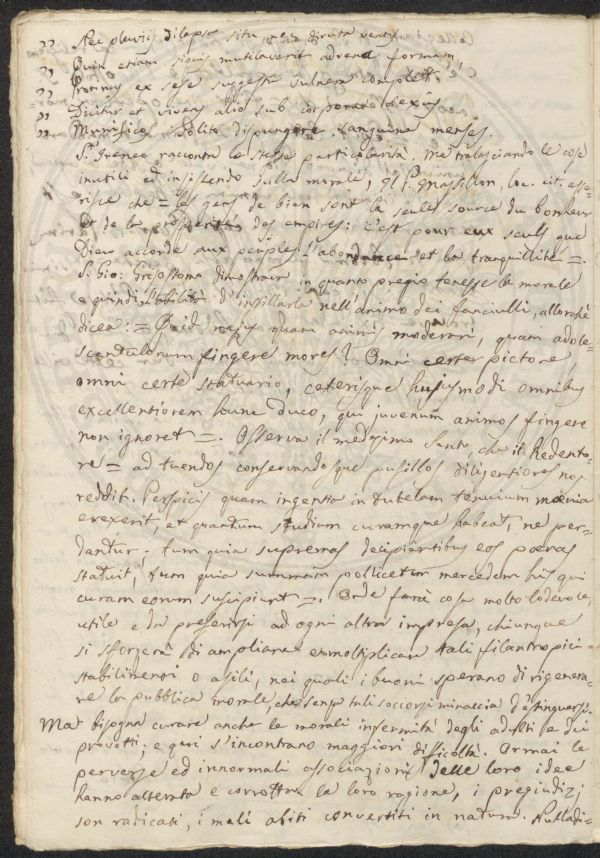 „ Nec pluviis dilapsa situ, nec diruta ventis.
„ Quin etiam siquis mutilaverit advena formam,
„ Protinus ex sese suggestu vulnera complet.
„ Dicitur et vivens alio sub corpore sexus
„ Munificos solito dispungere sanguine menses.
S. Ireneo racconta le stesse particolarità. Ma tralasciando le cose
inutili ed insistendo sulla morale, il P. Massillon, loc. cit. asse-
risce che = les gens de bien sont la seule source du bonheur
et de la prosperité des empires: c'est pour eux seuls que
Dieu accorde aux peuples l'abondance et la tranquillité =.
S. Gio: Grisostomo dimostrava in quanto pregio tenesse la morale
e quindi l'abilità d'instillarla nell'animo dei fanciulli, allorché
dicea: = Quid majus quam animis moderari, quam adole-
scentulorum fingere mores? Omni certe pictore
omni certe statuario, ceterisque hujusmodi omnibus
excellentiorem hunc duco, qui juvenum animos fingere
non ignoret =. Osserva il medesimo Santo, che il Redento-
re = ad tuendos conservandosque pusillos diligentiores nos
reddit. Perspicis quam ingentia in tutelam tenuium mœnia
erexerit, et quantum studium curamque habeat, ne per-
dantur; tum quia supremas decipientibus eos pœnas
statuit, tum quia summam pollicetur mercedem his qui
curam eorum suscipiunt =. Onde farà cosa molto lodevole,
utile e da preferirsi ad ogni altra impresa, chiunque
si sforzerà di ampliare e moltiplicare tali filantropici
stabilimenti o asili, nei quali i buoni sperano di rigenera-
re la pubblica morale, che senza tali soccorsi minaccia d'estinguersi.
Ma bisogna curare anche le morali infermità degli adulti e dei
provetti; e qui s'incontrano maggiori difficoltà. Ormai le
perverse ed innormali associazioni delle loro idee
hanno alterata e corrotta la loro ragione, i pregiudizj
son radicati, i mali abiti convertiti in natura. Nulladi-